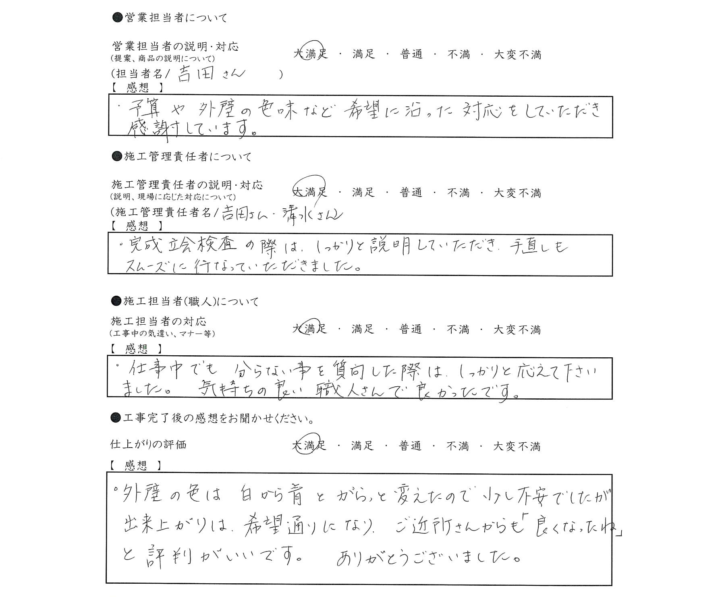 ●営業担当者について
営業担当者の説明・対応　大満足 ・ 満足 ・ 普通 ・ 不満 ・ 大変不満
(提案、商品の説明について)
(担当者名/ 吉田さん　)
【 感想 】
・予算や外壁の色味など 希望に沿った対応をしていただき
感謝しています。
●施工管理責任者について
施工管理責任者の説明・対応　大満足 ・ 満足 ・ 普通 ・ 不満 ・ 大変不満
(説明、現場に応じた対応について)
(施工管理責任者名/ 吉田さん・清水さん
【 感想 】
・完成立会検査の際は、しっかりと説明していただき、手直しも
スムーズに行なっていただきました。
●施工担当者(職人)について
施工担当者の対応　大満足 ・ 満足 ・ 普通 ・ 不満 ・ 大変不満
(工事中の気遣い、マナー等)
【 感想 】
・仕事中でも 分らない事を質問した際は、しっかりと応えて下さい
ました。 気持ちの良い 職人さんで良かったです。
●工事完了後の感想をお聞かせください。
仕上がりの評価　大満足 ・ 満足 ・ 普通 ・ 不満 ・ 大変不満
【 感想 】
・外壁の色は 白から青と がらっと変えたので 少し不安でしたが
出来上がりは、希望通りになり、ご近所さんからも「良くなったね」
と 評判がいいです。 ありがとうございました。